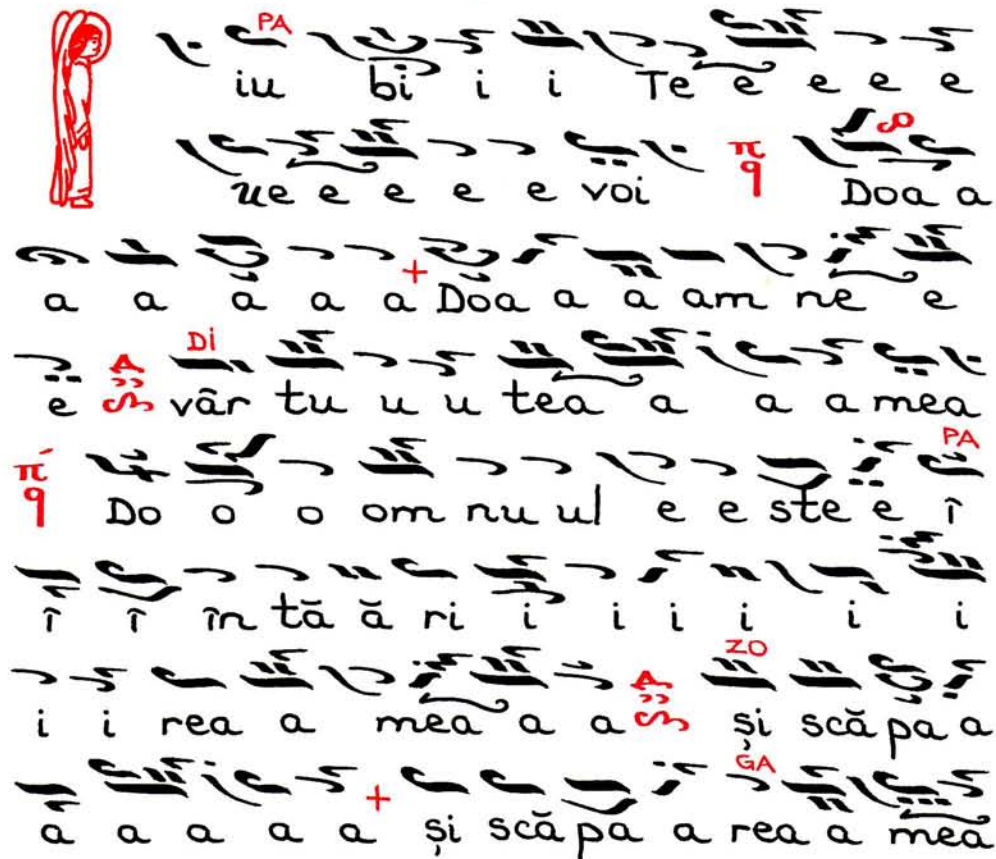 PA
iu bi i i Te e e e e
ue e e e e voi π q Doa a
a a a a a a + Doa a a am ne e
Di
e vâr tu u u tea a a a mea
PA
π q Do o o om nu ul e e ste e î
î î în tă ă ri i i i i i i
ZO
i i rea a mea a a și scă pa a
GA
a a a a a + și scă pa a rea a mea